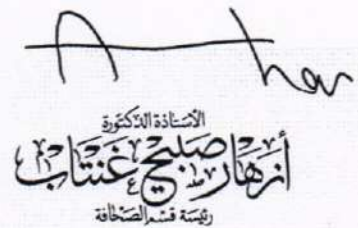 الأستاذة الدكتورة
أزهار صبيح غنتاب
رئيسة قسم الصحافة